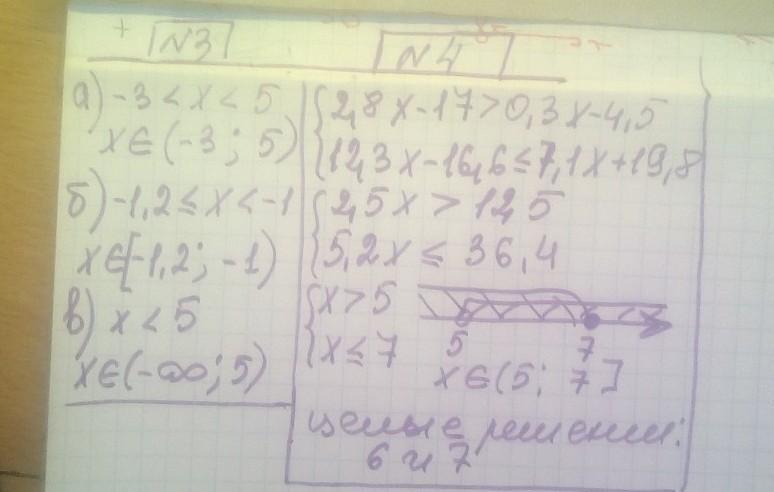 N3
а) -3 < x < 5
x∈(-3; 5)
б) -1,2 ≤ x < -1
x∈[-1,2; -1)
в) x < 5
x∈(-∞; 5)
N4
{2,8x-17>0,3x-4,5
{12,3x-16,6≤7,1x+19,8
{2,5x > 12,5
{5,2x ≤ 36,4
{x>5
{x≤7
5 7
x∈(5; 7]
целые решения:
6 и 7